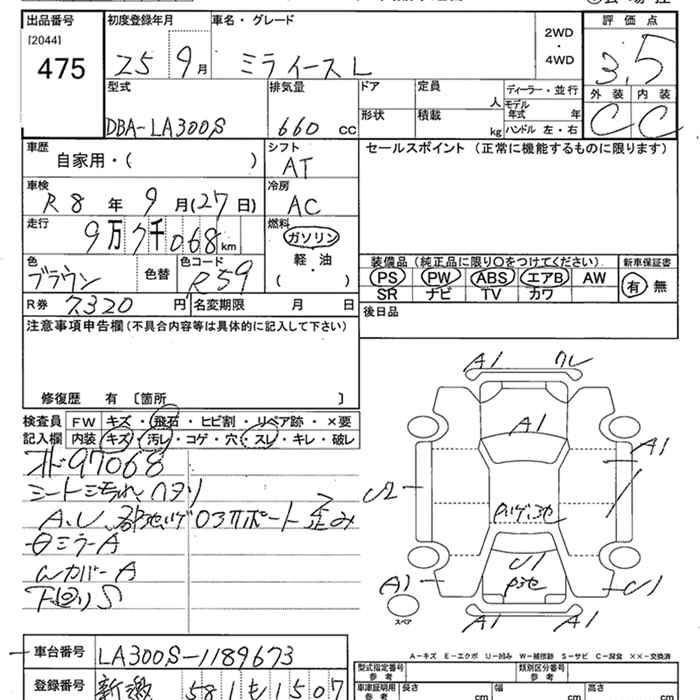 出品番号
[2044]
475
初度登録年月
25 9月
車名・グレード
ミライース L
2WD
・
4WD
評価点
3.5
外装 内装
C C
型式
DBA-LA300S
排気量
660 cc
ドア
定員
人
形状
積載
kg
ディーラー・並行
モデル年式 年
ハンドル 左・右
車歴
自家用・( )
シフト
AT
セールスポイント (正常に機能するものに限ります)
車検
R8年 9月(27日)
冷房
AC
走行
9万7千068km
燃料
ガソリン
軽・油
( )
色
ブラウン
色替
色コード
R59
装備品 (純正品に限り○をつけてください)
新車保証書
PS PW ABS エアB AW
SR ナビ TV カワ
有 無
R券 7320円
名変期限 月 日
後日品
注意事項申告欄 (不具合内容等は具体的に記入して下さい)
修復歴 有 〔箇所 〕
検査員記入欄
FW キズ・飛石・ヒビ割・リペア跡・×要
内装 キズ・汚レ・コゲ・穴・スレ・キレ・破レ
97068
A.U
ミラーA
カバーA
下回りS
A1
A1
A1
U2
U1
A1
U1
A1 A1
スペア
A-キズ E-エクボ U-凹み W-補修跡 S-サビ C-腐食 ××-交換済
車台番号
LA300S-1189673
登録番号
581 も 1507
型式指定番号
参考
類別区分番号
参考
車庫証明用
参考
長さ cm
幅 cm
高さ cm